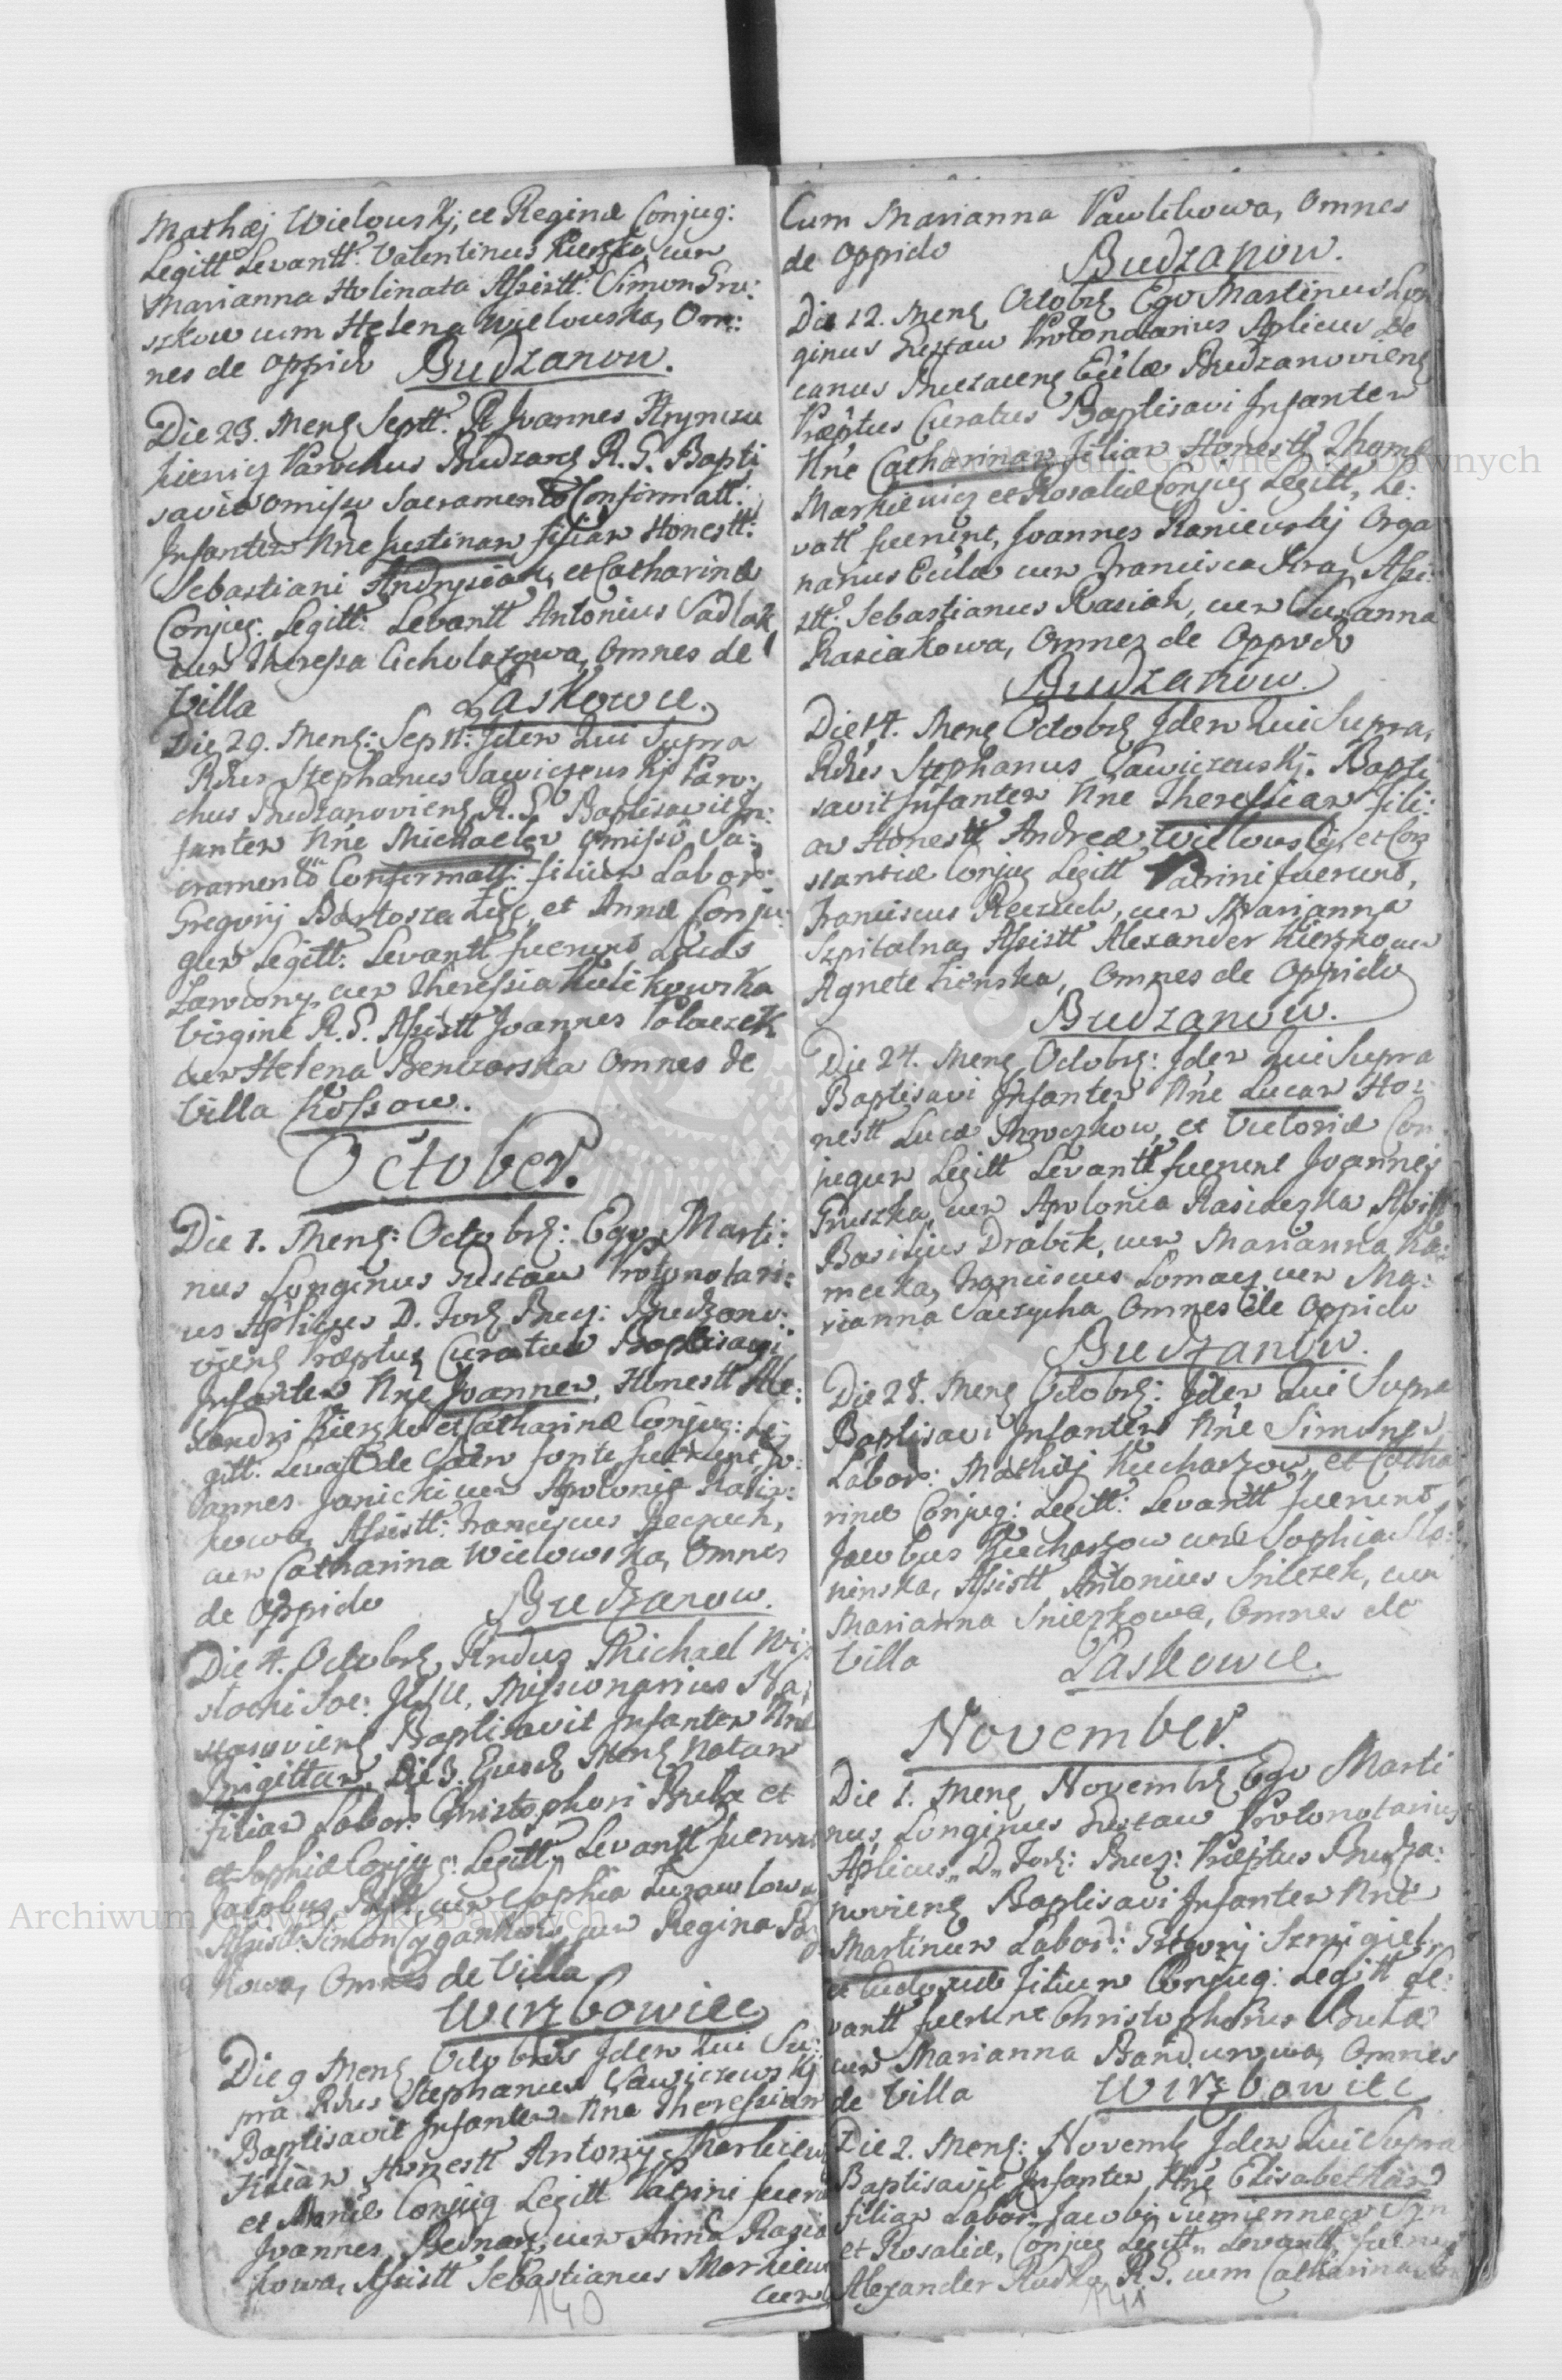 Mathæj Wielowskj, et Reginæ Conjug:
Legitt Levantt: Valentinus Kierzko, cum
Marianna Holinata Assistt: Simon Gru:
szkow cum Helena Wielowska, Om:
nes de Oppido Budzanow.
Die 23. Mens Septt: R Joannes Hryniew
kiewicz Parochus Budzans R. G. Bapti
savit omisso Sacramento Confirmatt:
Infantem Nne Justinam filiam Honestt:
Sebastiani Andrysiak, et Catharinæ
Conjug. Legitt: Levantt Antonius Sadlak
cum Theressa Cicholazowa, Omnes de
Villa Laskowce.
Die 29. Mens: Septt: Idem Qui Supra
Rdus Stephanus Sawiczewskj Paro:
chus Budzanoviens R. G. Baptisavit In:
fantem Nne Michaelem omisso Sa:
cramento Confirmatt: filium Labor:
Gregorij Bartosza et Annæ Conju:
gum Legitt: Levantt fuerunt Lucas
cum Theressia Kulikowska
Virgine R. G. Assistt Joannes Polaczek
cum Helena Omnes de
Villa Kossow.
October.
Die 1. Mens: Octobrs: Ego Marti:
nus Longinus Gustaw Protonotari:
us Aplicus D. Fors Bucz: Budzano:
viens Præptus Curatus Baptisavi
Infantem Nne Joannem, Honestt Ale:
xandri Kierzko et Catharinæ Conjug: Le
gitt. Levatt de Sacro fonte fuerunt, Jo:
annes Janicki cum Apolonia Rasia:
kowa, Assistt: Franciscus Reczuch,
cum Catharina Wielowska, Omnes
de Oppido Budzanow.
Die 4. Octobrs Rndus Michael Wi
stocki Soc: JESU, Missionarius Na
stasoviens Baptisavit Infantem Nne
Brigittam, Die 3. Ejusd Mens Natam
filiam Labor: Christophori Buta et
et Sophiæ Conjug: Legitt: Levantt fuerunt
Jacobus cum Sophia
Assistt: Simon Cygankow, cum Regina
kowa, Omnes de Villa
Wirzbowiec
Die 9 Mens Octobris Idem Qui Su:
pra Rdus Stephanus Sawiczewskj
Baptisavit Infantem Nne Theressiam
filiam Honestt Antonij Markiew
et Annæ Conjug Legitt Patrini fuerū
Joannes Bednarz, cum Anna Rasia
kowa, Assistt Sebastianus Markiew
cum
140
Cum Marianna Pawlikowa, Omnes
de Oppido Budzanow.
Die 12. Mens Octobrs Ego Martinus Lon
ginus Gustaw Protonotarius Aplicus De
canus Buczaciens Ecclæ Budzanoviens
Præptus Curatus Baptisavi Infantem
Nne Catharinam filiam Honestt Thomæ
Markiewicz et Rosaliæ Conjug Legitt, Le:
vatt fuerunt, Joannes Raniewskj Orga
narius Ecclæ cum Francisca Assi:
stt: Sebastianus Rasiak, cum Susanna
Rasiakowa, Omnes de Oppido
Budzanow.
Die 14. Mens Octobrs Idem Qui Supra,
Rdus Stephanus Sawiczewskj. Bapti
savit Infantem Nne Theressiam fili:
am Honestt Andreæ Wielowskj, et Con
stantiæ Conjug Legitt Patrini fuerunt,
Franciscus Reczuch, cum Marianna
Szpitalna, Assistt Alexander Kierzko, cum
Agnete Omnes de Oppido
Budzanow.
Die 24. Mens Octobrs: Idem Qui Supra
Baptisavi Infantem Nne Lucam Ho:
nestt Lucæ et Victoriæ Con
jugum Legitt Levantt fuerunt Joannes
Gruszka, cum Apolonia Rasiaczka, Assistt
Basilius Drabik, cum Marianna Ka:
mecka, Franciscus Lomacz cum Ma:
rianna Omnes de Oppido
Budzanow.
Die 28. Mens Octobrs: Idem Qui Supra
Baptisavi Infantem Nne Simonem
Labor: Mathæj Kucharzow, et Catha
rinæ Conjug: Legitt: Levantt fuerunt
Jacobus Kucharzow cum Sophia Slo:
ninska, Assistt Antonius Sniezek, cum
Marianna Sniezkowa, Omnes de
Villa Laskowce.
November.
Die 1. Mens Novembrs Ego Marti
nus Longinus Gustaw Protonotarius
Aplicus, D. Fors: Bucz: Præptus Budza:
noviens Baptisavi Infantem Nne
Martinum Labor: Gregorij Szmigiel,
et filium Conjug: Legitt Le:
vantt fuerunt Christophorus Buta
cum Marianna Bandurowa, Omnes
de Villa Wirzbowiec
Die 2. Mens: Novemb Idem Qui Supra
Baptisavit Infantem Nne Elisabetham
filiam Labor: Jacobi
et Rosaliæ, Conjug Legitt, Levantt fuerunt
Alexander Rudko R. G. cum Catharina
141
Archiwum Główne Akt Dawnych
Archiwum Główne Akt Dawnych